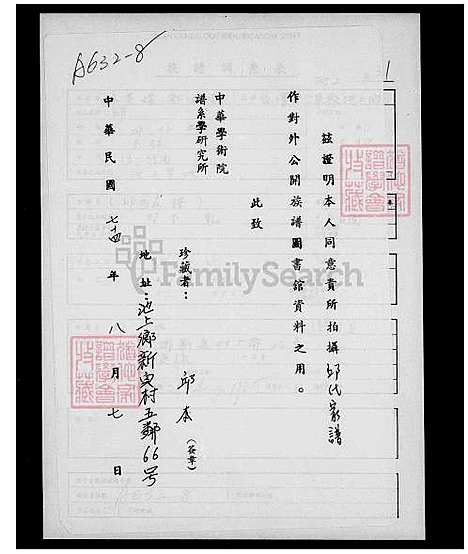 A632-8
1
茲證明本人同意貴所拍攝邱氏家譜
作對外公開族譜圖書館資料之用。
此致
中華學術院
譜系學研究所
珍藏者：邱本（簽章）
地址：池上鄉新兴村五鄰66号
中華民國七十四年八月七日
FamilySearch